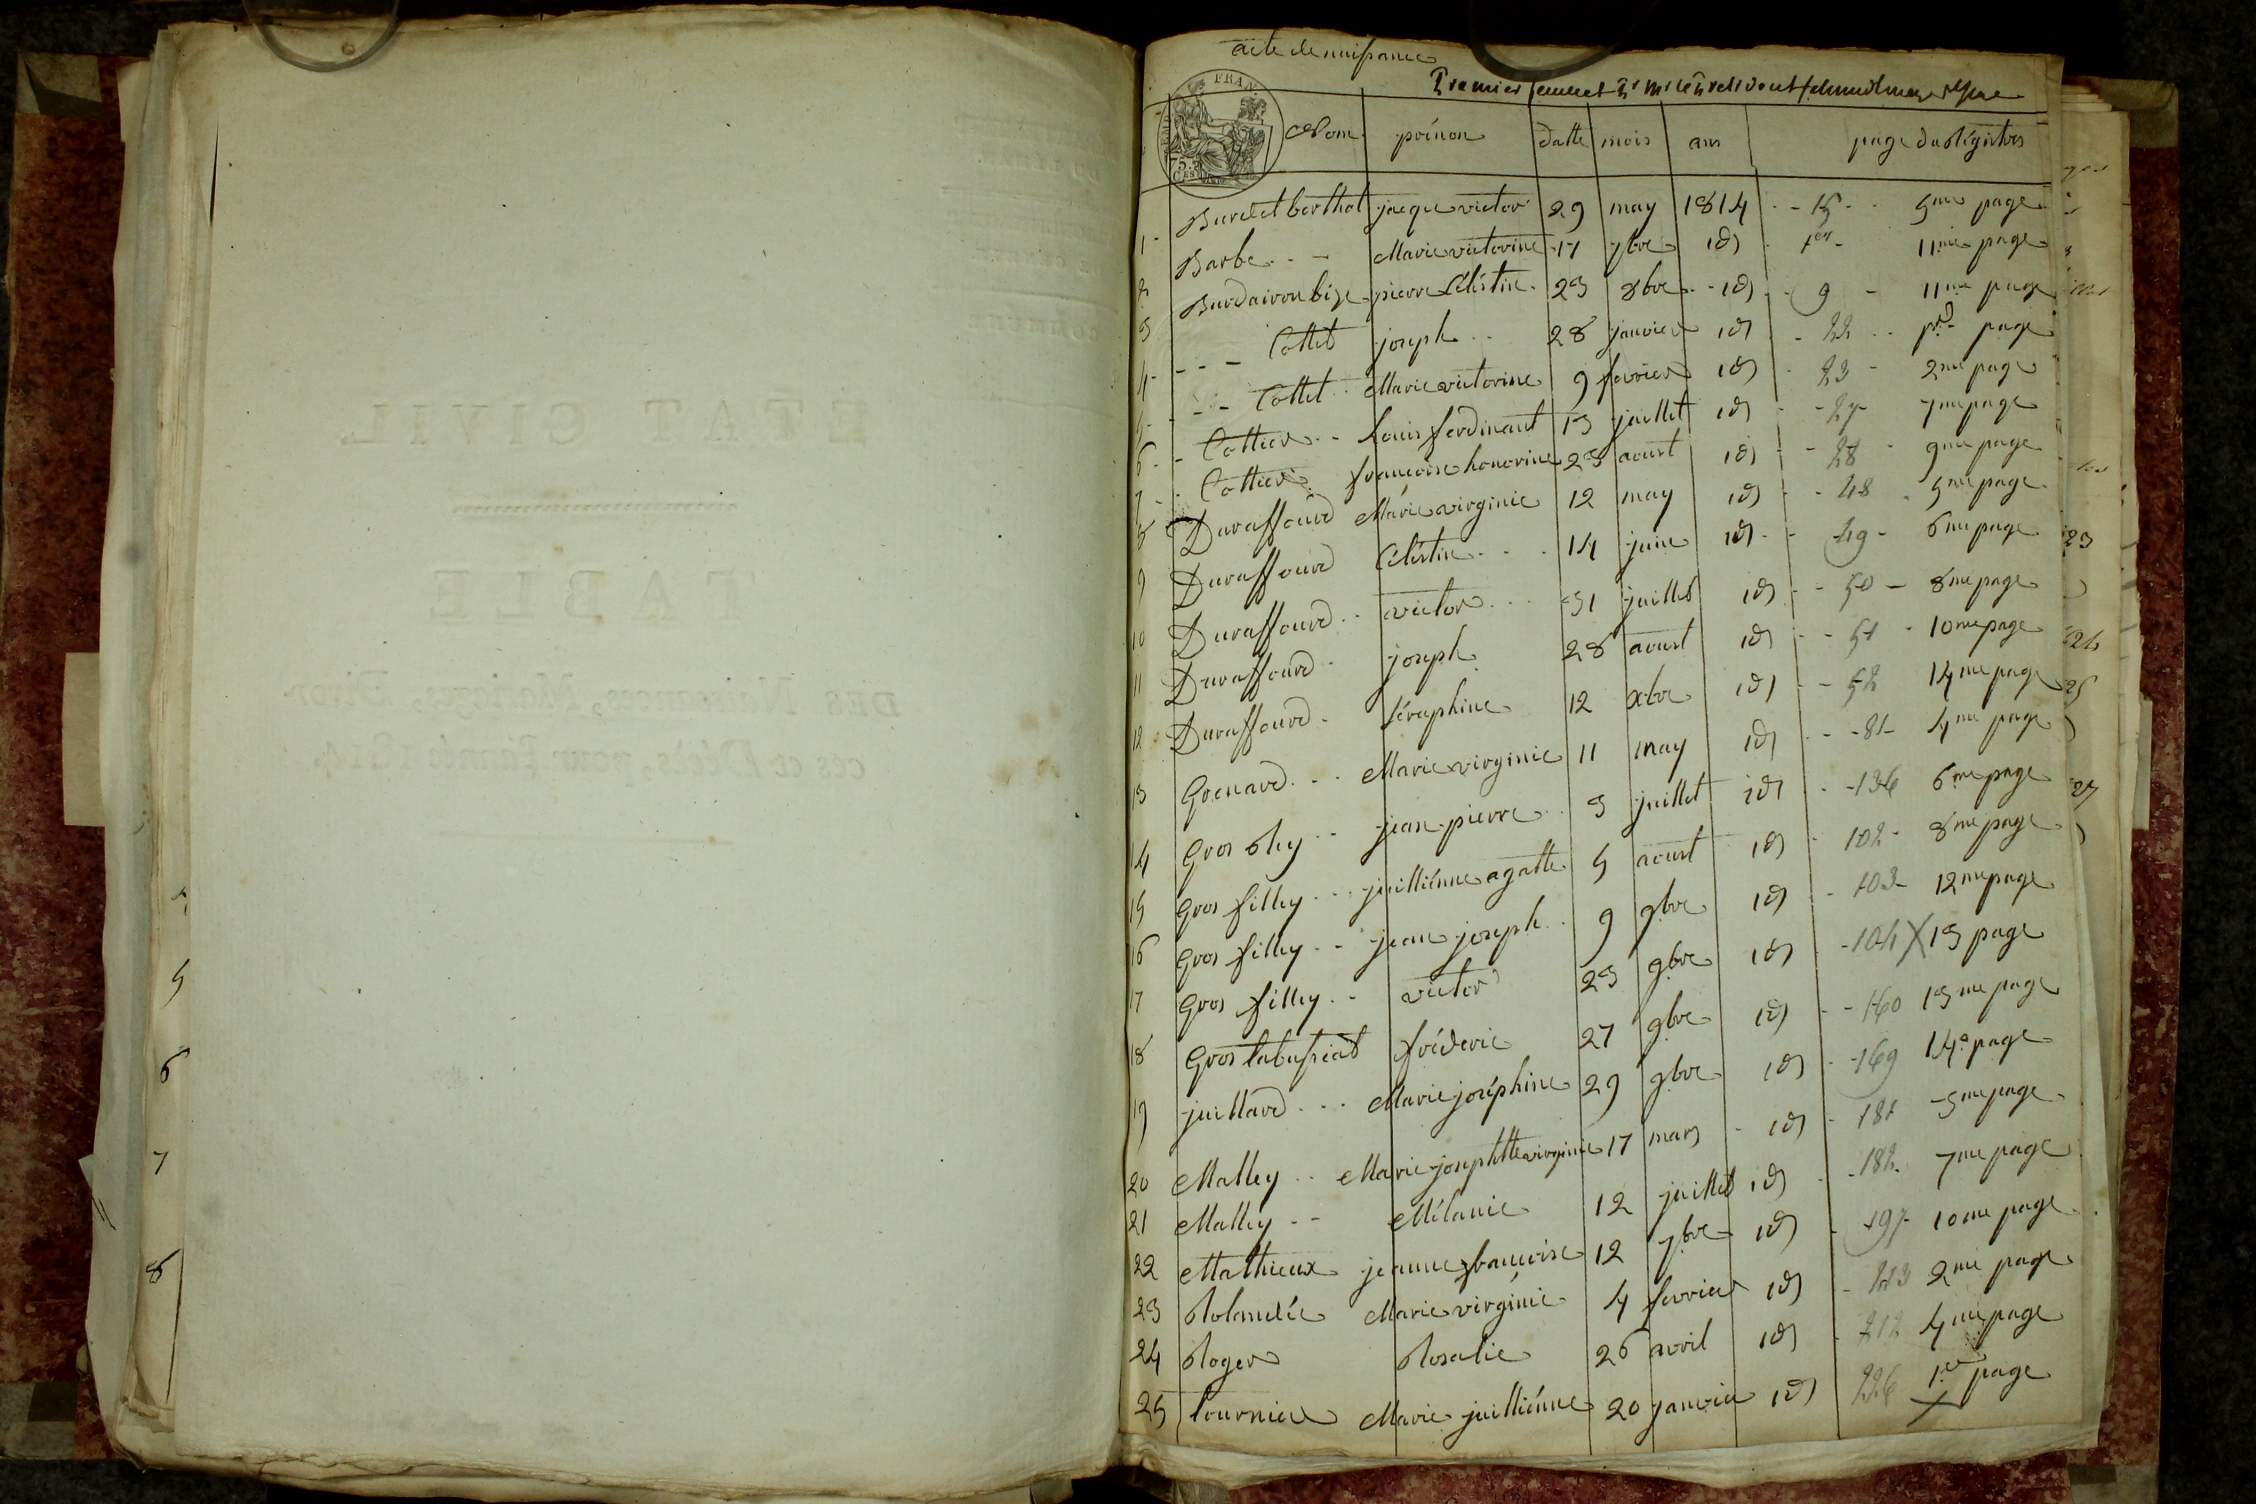 acte de naissance
Premier feuillet
Nom prénon datte mois ans page du Régistres
1 - Burdet berthot jacque victor 29 may 1814 - 15 - 5me page
2 Barbe - - Marie victorine 17 7bre id 11me page
3 Burdairon bize pierre Célestin 23 8bre id 9 - 11me page
4 - - - Collet joseph 28 janvier id - 22 - page
5 - - Collet Marie victorine 9 fevrier id - 23 - 2me page
6 - Collier - Louis ferdinant 13 juillet id - 27 - 7me page
7 - Collier françoise honorine 23 aoust id - 28 - 9me page
8 Duraffourd Marie virginie 12 may id - 48 - 5me page
9 Duraffourd Célestin - 14 juin id - 49 - 6me page
10 Duraffourd - victor - 31 juillet id - 50 - 8me page
11 Duraffourd - joseph 28 aoust id - 51 - 10me page
12 Duraffourd - séraphine 12 xbre id - 52 14me page
13 Grenard - Marie virginie 11 may id - 81 - 4me page
14 Gros jean pierre 3 juillet id - 136 6me page
15 Gros filley - juilliénne agatte 5 aoust id - 102 - 8me page
16 Gros filley - jean joseph 9 9bre id - 103 - 12me page
17 Gros filley - victor 23 9bre id - 104 X 13 page
18 Gros labussiat fréderic 27 9bre id - 160 13me page
19 juillard - Marie joséphine 29 9bre id - 169 14e page
20 Malley - Marie josephtte virginie 17 mars id - 181 3me page
21 Malley - Mélanie 12 juillet id - 182 7me page
22 Mathieux jeanne françoise 12 7bre id - 197 10me page
23 Rolandée Marie virginie 4 fevrier id - 213 2me page
24 Roger Rosalie 26 avril id - 212 4me page
25 tournier Marie juilliénne 20 janvier id 226 1re page
X
ETAT CIVIL.
TABLE
DES Naissances, Mariages, Divor-
ces et Décès, pour l'année 1814.
5
6
7
8